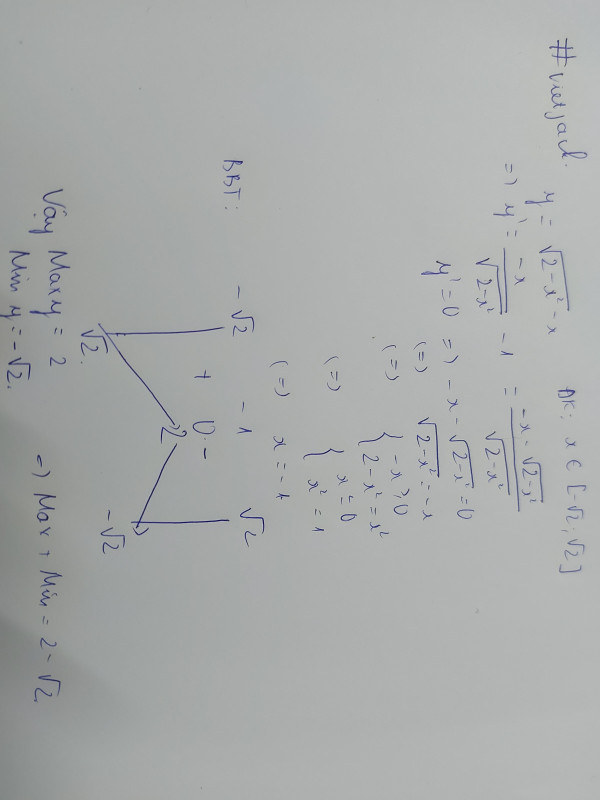 #vietjack.
y = √(2-x²) - x ĐK: x ∈ [-√2; √2]
=> y' = -x/√(2-x²) - 1 = (-x - √(2-x²))/√(2-x²)
y' = 0 => -x - √(2-x²) = 0
(=) √(2-x²) = -x
(=) { -x ≥ 0
2 - x² = x²
(=) { x ≤ 0
x² = 1
(=) x = -1
BBT:
-√2 -1 √2
+ 0 -
2
√2 -√2
Vậy Max y = 2 => Max + Min = 2 - √2.
Min y = -√2.